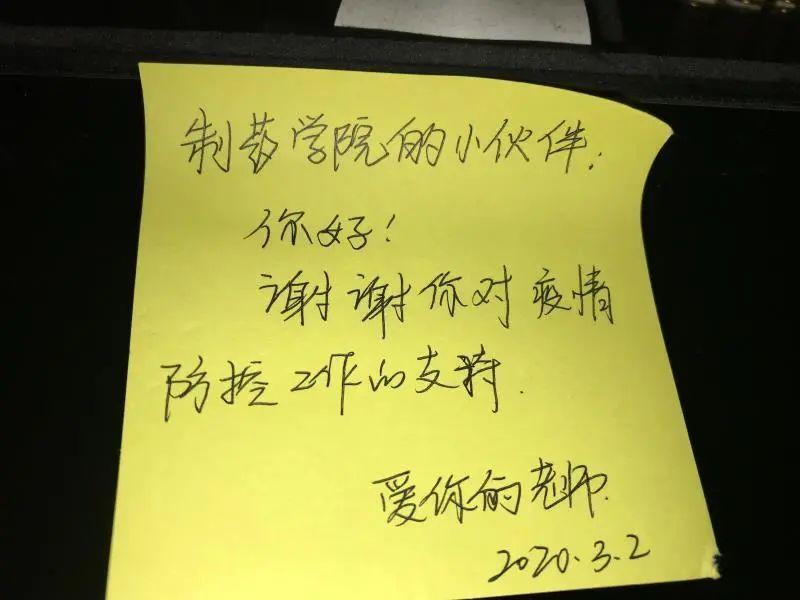 制药学院的小伙伴:
你好!
谢谢你对疫情
防控工作的支持.
爱你的老师.
2020.3.2